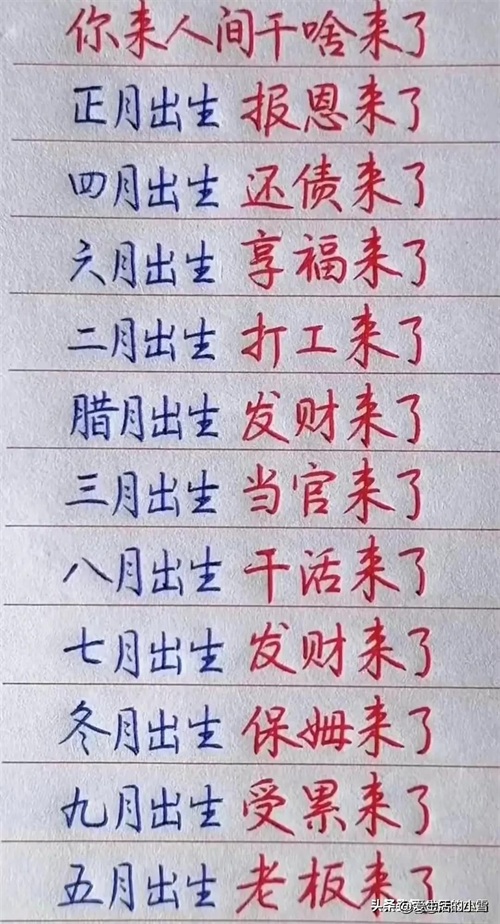 你来人间干啥来了
正月出生 报恩来了
四月出生 还债来了
六月出生 享福来了
二月出生 打工来了
腊月出生 发财来了
三月出生 当官来了
八月出生 干活来了
七月出生 发财来了
冬月出生 保姆来了
九月出生 受累来了
五月出生 老板来了
头条@爱生活的小雪